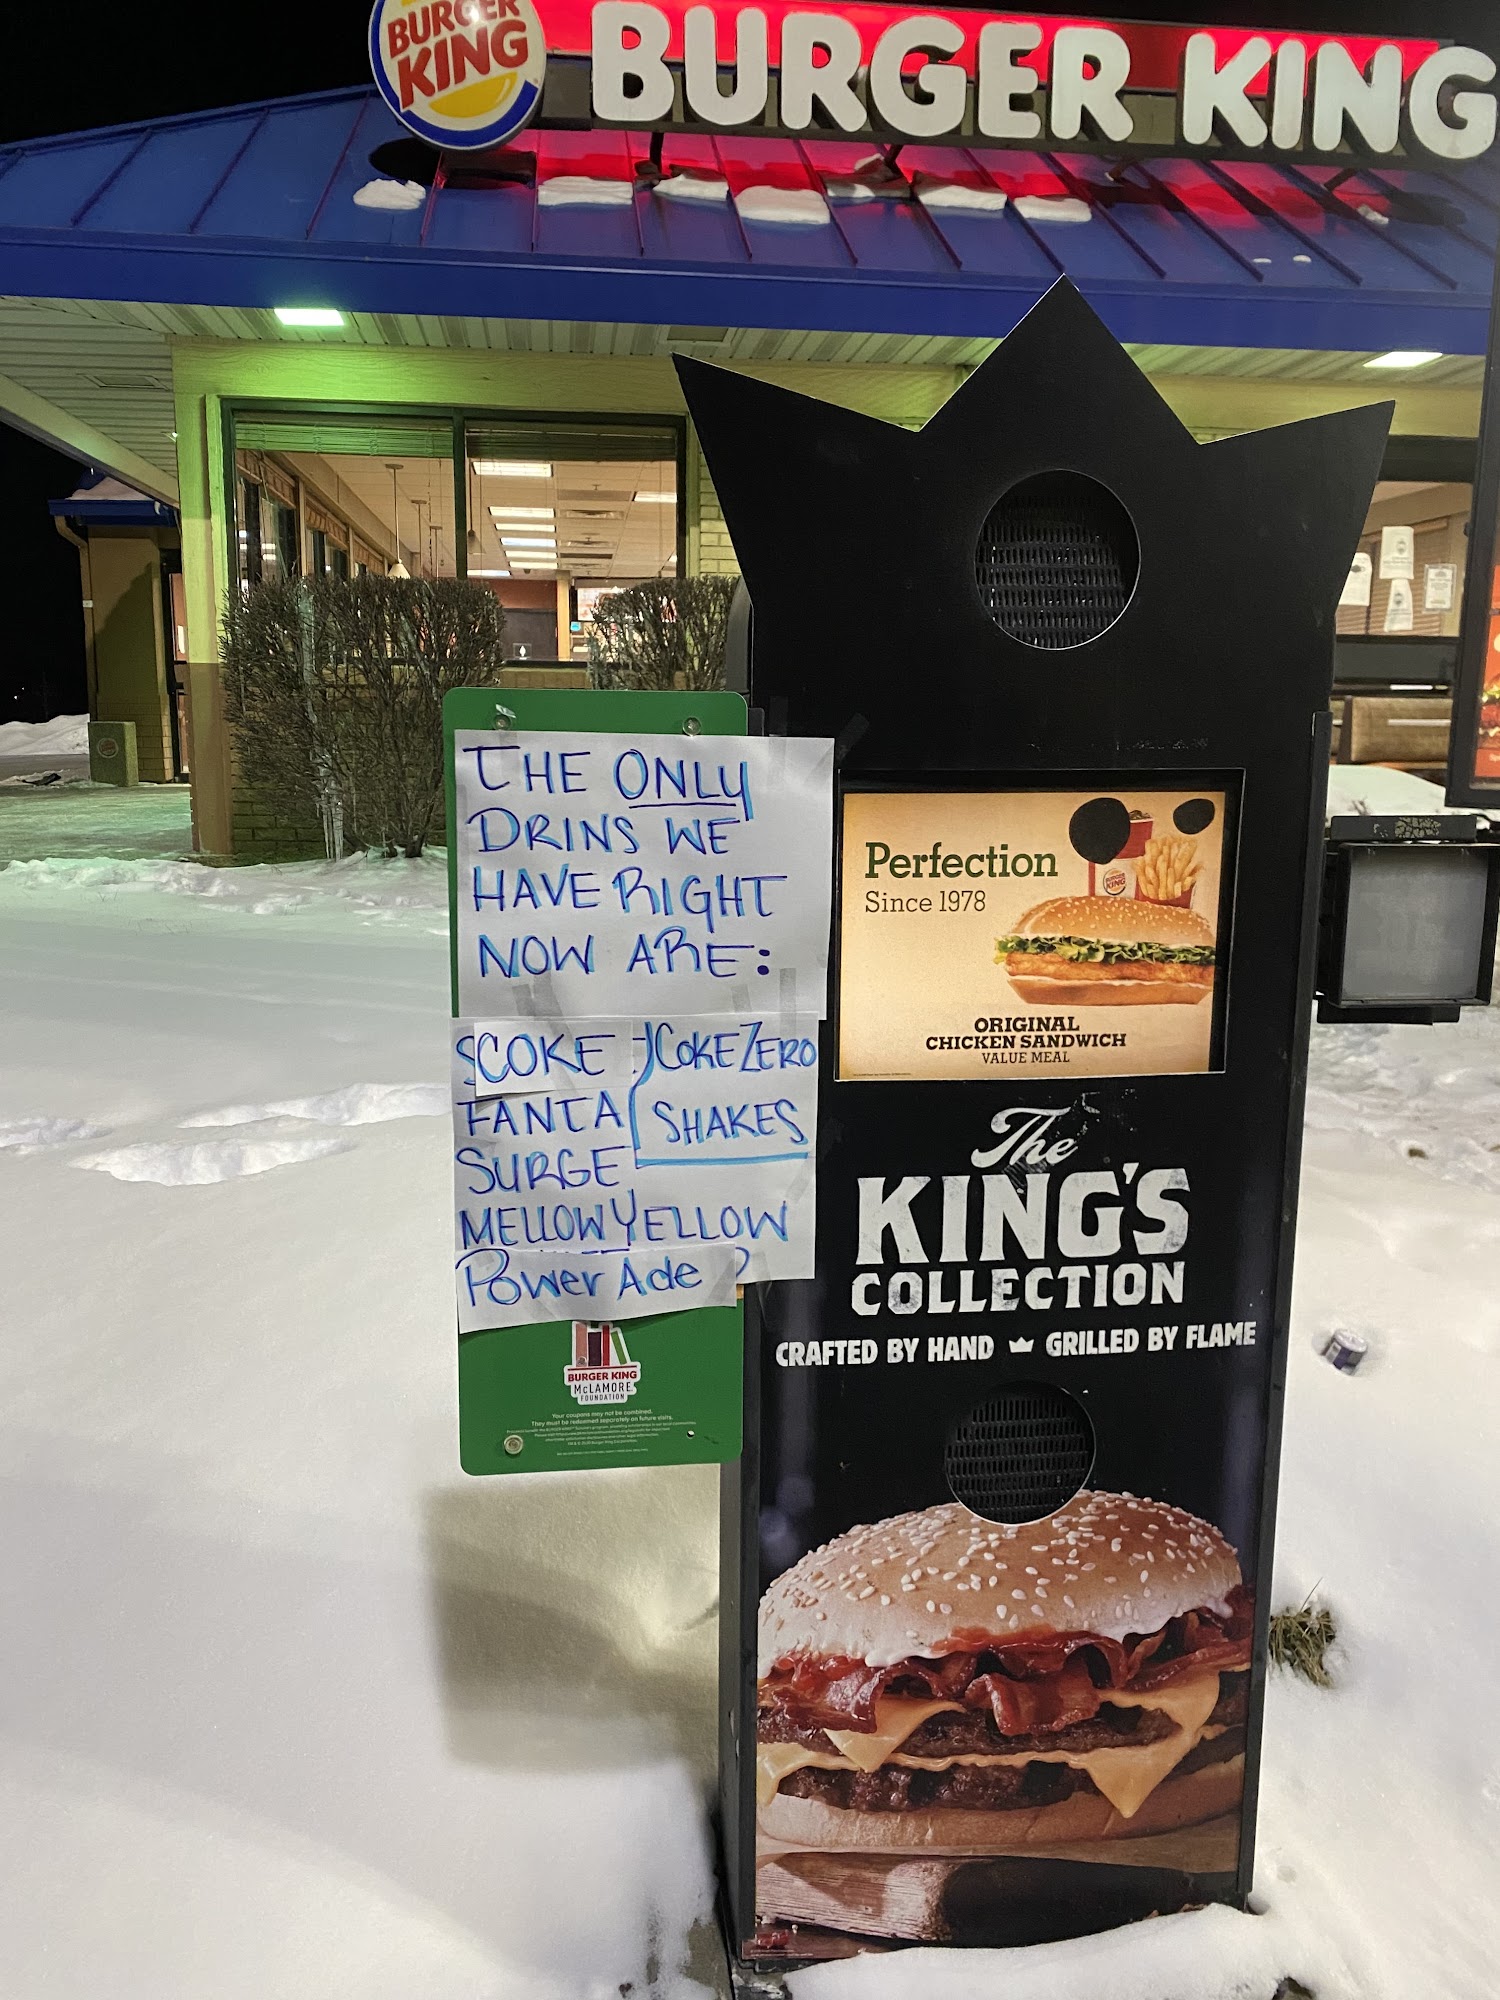 BURGER
KING
BURGER KING
THE ONLY
DRINS WE
HAVE RIGHT
NOW ARE:
COKE
COKE ZERO
FANTA
SHAKES
SURGE
MELLOW YELLOW
PowerAde
BURGER KING
McLAMORE
FOUNDATION
Your coupons may not be combined.
They must be redeemed separately on future visits.
Perfection
Since 1978
BURGER
KING
ORIGINAL
CHICKEN SANDWICH
VALUE MEAL
The
KING'S
COLLECTION
CRAFTED BY HAND GRILLED BY FLAME